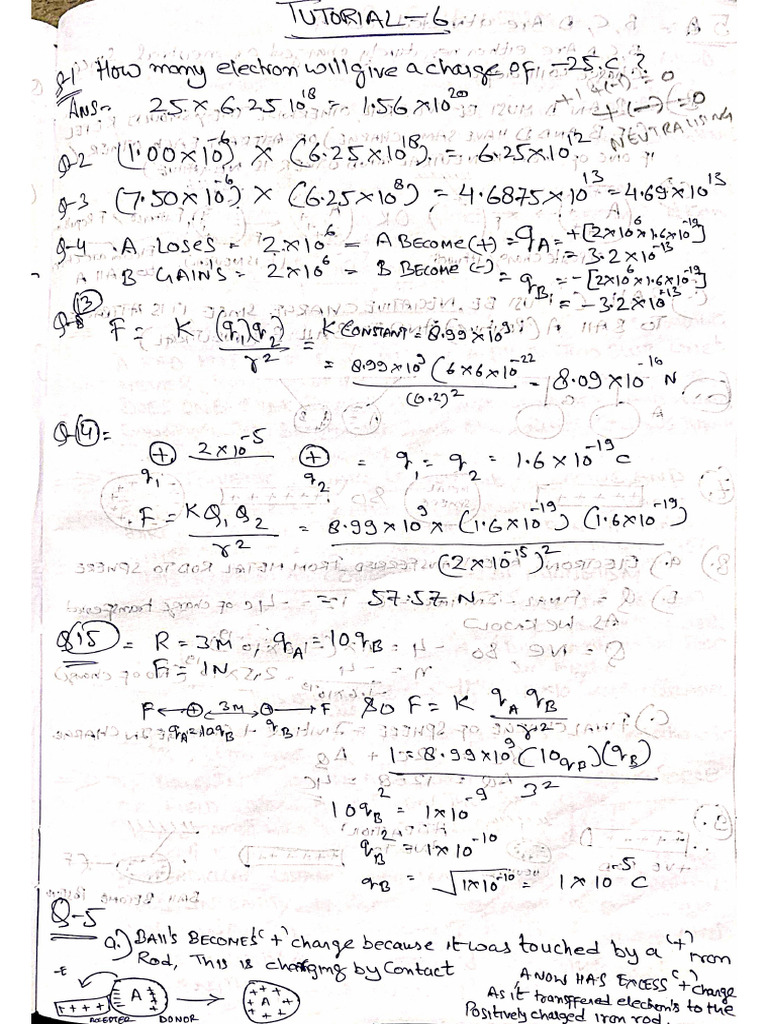 TUTORIAL-6
Q-1 How many electron will give a charge of -25.C ?
+1 & (-) = 0
Ans- 25 x 6.25 10^18 = 1.56x10^20
+ (-) = 0
NEUTRALISING
Q-2 (1.00x10^-6) x (6.25x10^18) = 6.25x10^12
Q-3 (7.50x10^-6) x (6.25x10^8) = 4.6875x10^13 = 4.69x10^13
Q-4 A LOSES = 2x10^6 = A BECOME (+) = qA = +[2x10^6x1.6x10^-19]
= 3.2x10^-13
B GAIN'S = 2x10^6 = B BECOME (-) = qB = -[2x10^6x1.6x10^-19]
= -3.2x10^-13
Q-(13) F = K (q1)(q2)/r^2 = K CONSTANT = 8.99x10^9
= 8.99x10^9 (6x6x10^-22)/(0.2)^2 = 8.09x10^-10 N
Q-(14) =
(+) 2x10^-5 (+) = q1 = q2 = 1.6x10^-19 C
q1 q2
F = K Q1 Q2/r^2 = 8.99x10^9 x (1.6x10^-19) (1.6x10^-19)/(2x10^-15)^2
= 57.57 N
Q15 = R = 3M, qA = 10qB
F = 1N
F ← (+) 3M (+) → F SO F = K qA qB/r^2
qA = 10qB qB
1 = 8.99x10^9 (10qB)(qB)/3^2
10qB^2 = 1x10^-9
qB^2 = 1x10^-10
qB = √1x10^-10 = 1x10^-5 C
Q-5
a.) BAll's BECOMES (+) charge because it was touched by a (+) Iron
Rod, This is charging by Contact
-E
A NOW HAS EXCESS (+) charge
++++ A → A
As it transfered electron's to the
ACCEPTER DONOR
Positively charged iron rod.